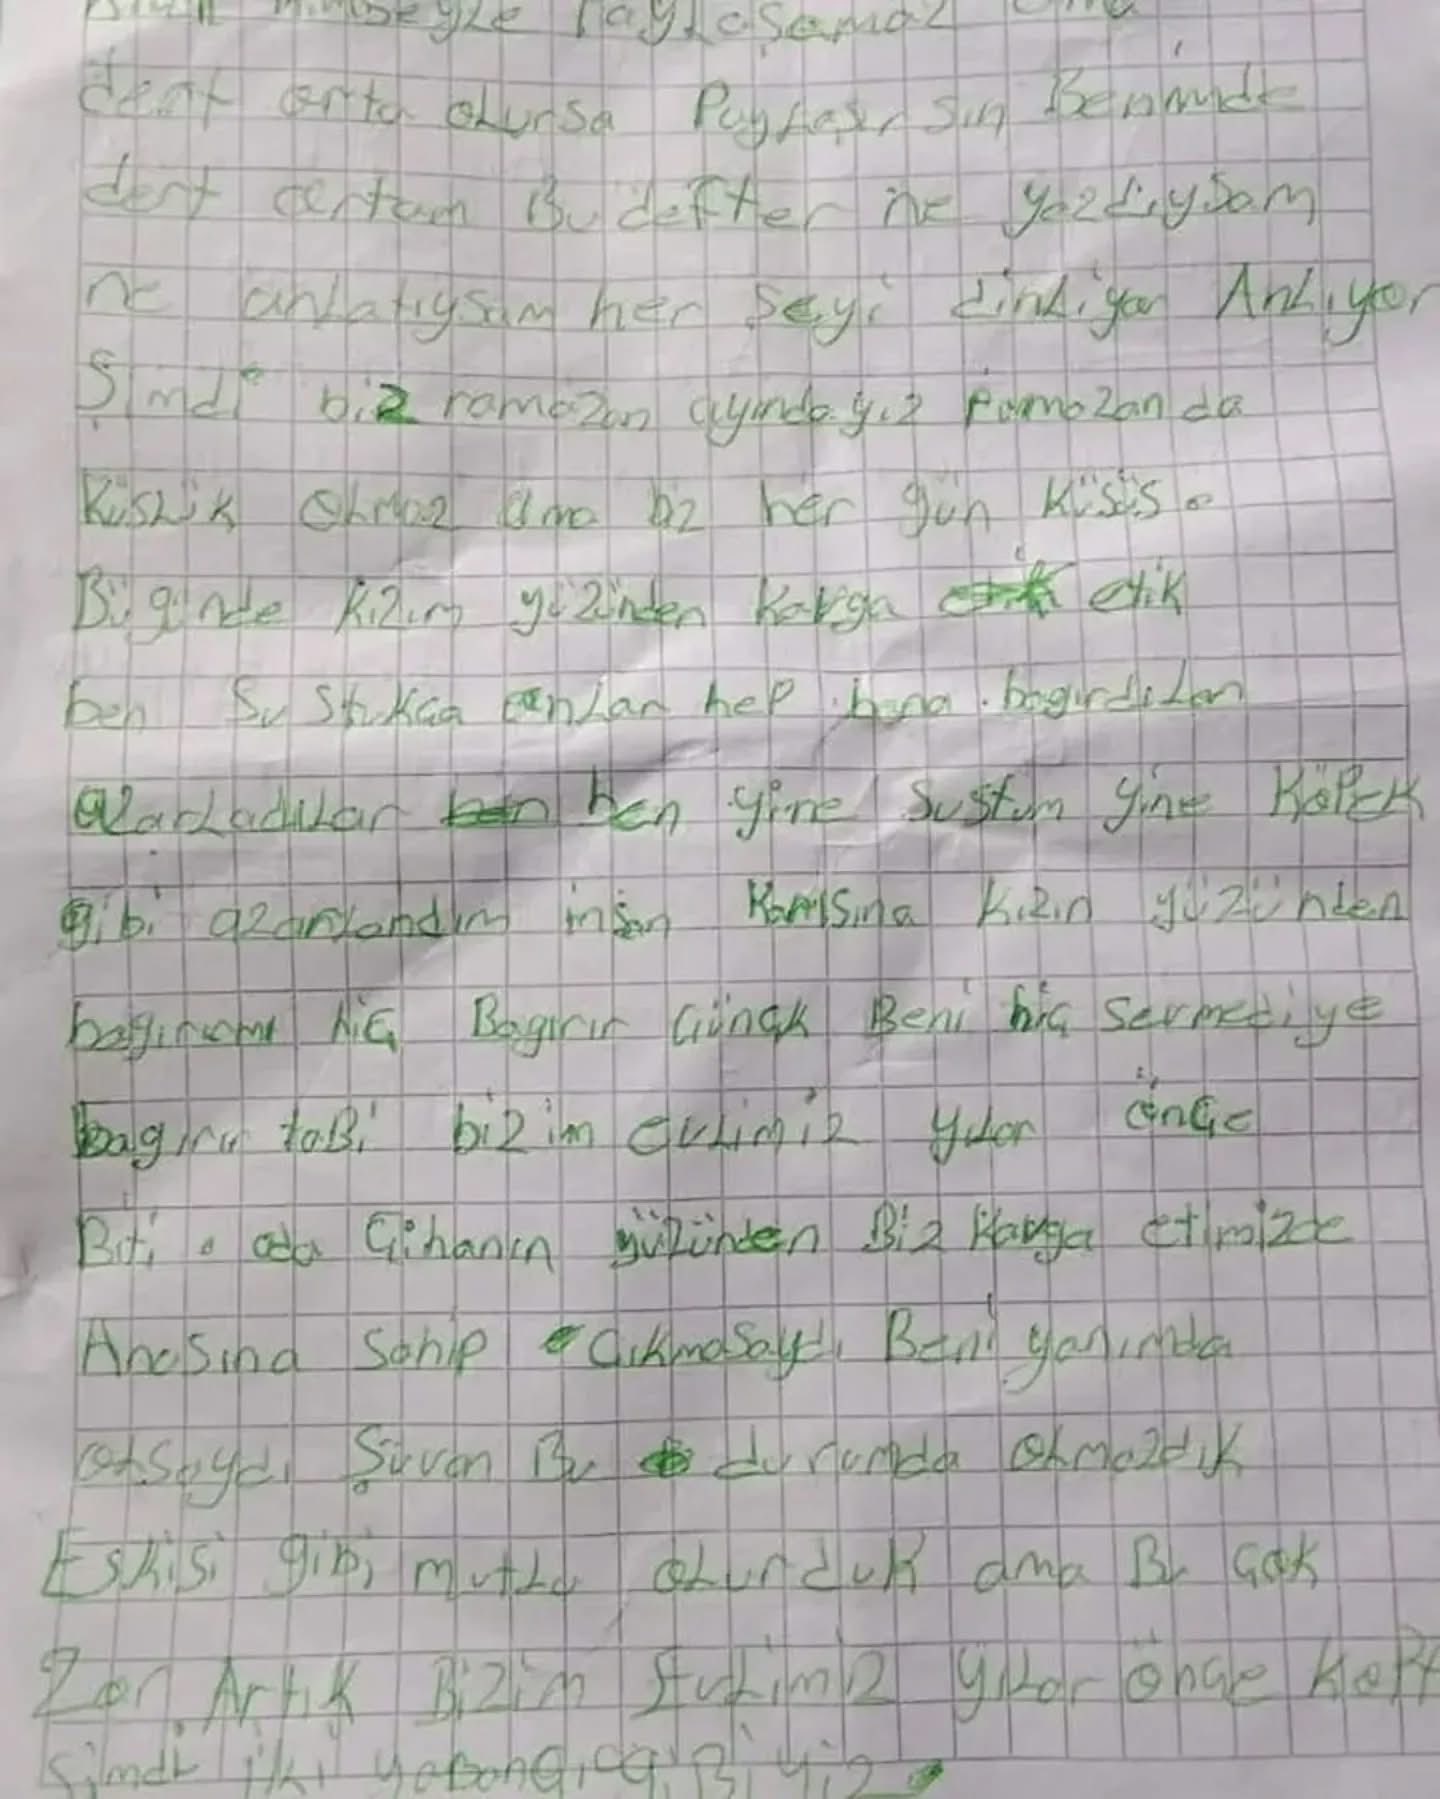 Paylaşamaz ama
dert orta olursa Paylaşırsın Benimde
dert ortam Bu defter ne yazdıysam
ne anlatıysam her şeyi dinliyor Anlıyor
Şimdi biz ramazan ayındayız Ramazan da
Küslük olmaz ama biz her gün Küsüs.
Bügünde kızım yüzünden kavga etik
ben Sustukca onlar hep bana bagırdılar
azarladılar ben yine sustum yine Köpek
gibi azarlandım insan Karısına kızın yüzünden
bagırırmı hiç Bagırır Çünçk Beni hiç sevmediye
bagırır tabi bizim evlimiz yılor önçe
Biti. oda Cihanın yüzünden Biz Kavga etimizde
Anasına Sahip Çıkmasaydı Beni yanımda
olsaydı Şuvan Bu durumda olmazdık
Eskisi gibi mutlu olurduk ama Bu Çok
Zor Artık Bizim Evlimiz yılor önçe
Şimdi iki yabançı giBiyiz